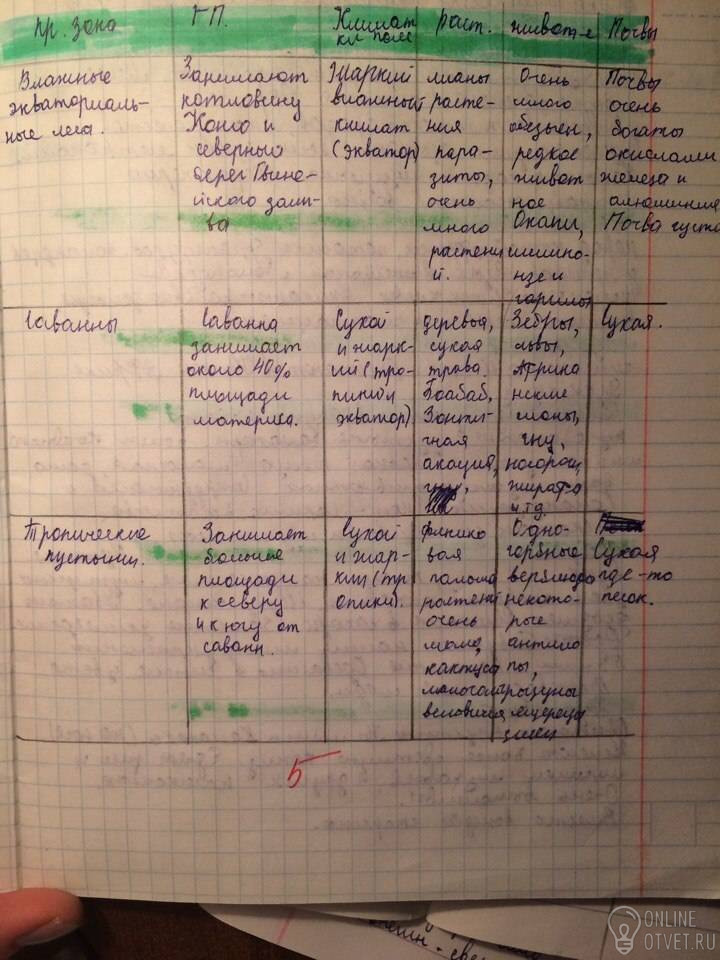 пр. зона
Г П.
Климат
кл. пояс
раст.
животн-е
Почвы
Влажные
экваториаль-
ные леса.
Занимают
котловину
Конго и
северный
берег Гвине-
йского зали-
ва
Жаркий
влажный
климат
(экватор)
лианы
расте-
ния
пара-
зиты,
очень
много
растени
й.
Очень
много
обезьян,
редкое
живот
ное
Окапи,
шимпа-
нзе и
гориллы
Почвы
очень
богаты
окислами
железа и
алюминия
Почва густа
Саванны
Саванна
занимает
около 40%
площади
материка.
Сухой
и жарк-
ий (тро-
пики и
экватор)
деревья,
сухая
трава.
Баобаб,
Зонти-
чная
акация,
Зебры,
львы,
Африка
нские
слоны,
гну,
носорог,
жираф
и т.д.
Сухая.
Тропические
пустыни.
Занимает
большие
площади
к северу
и к югу от
саванн.
Сухой
и жар-
кий (тр
опики).
финико
вая
пальма
растений
очень
мало,
кактусы
Одно-
горбные
верблюды
некото-
рые
антило
пы,
грызуны
ящерицы
змеи
Сухая
где-то
песок.
5
ONLINE
OTVET.RU